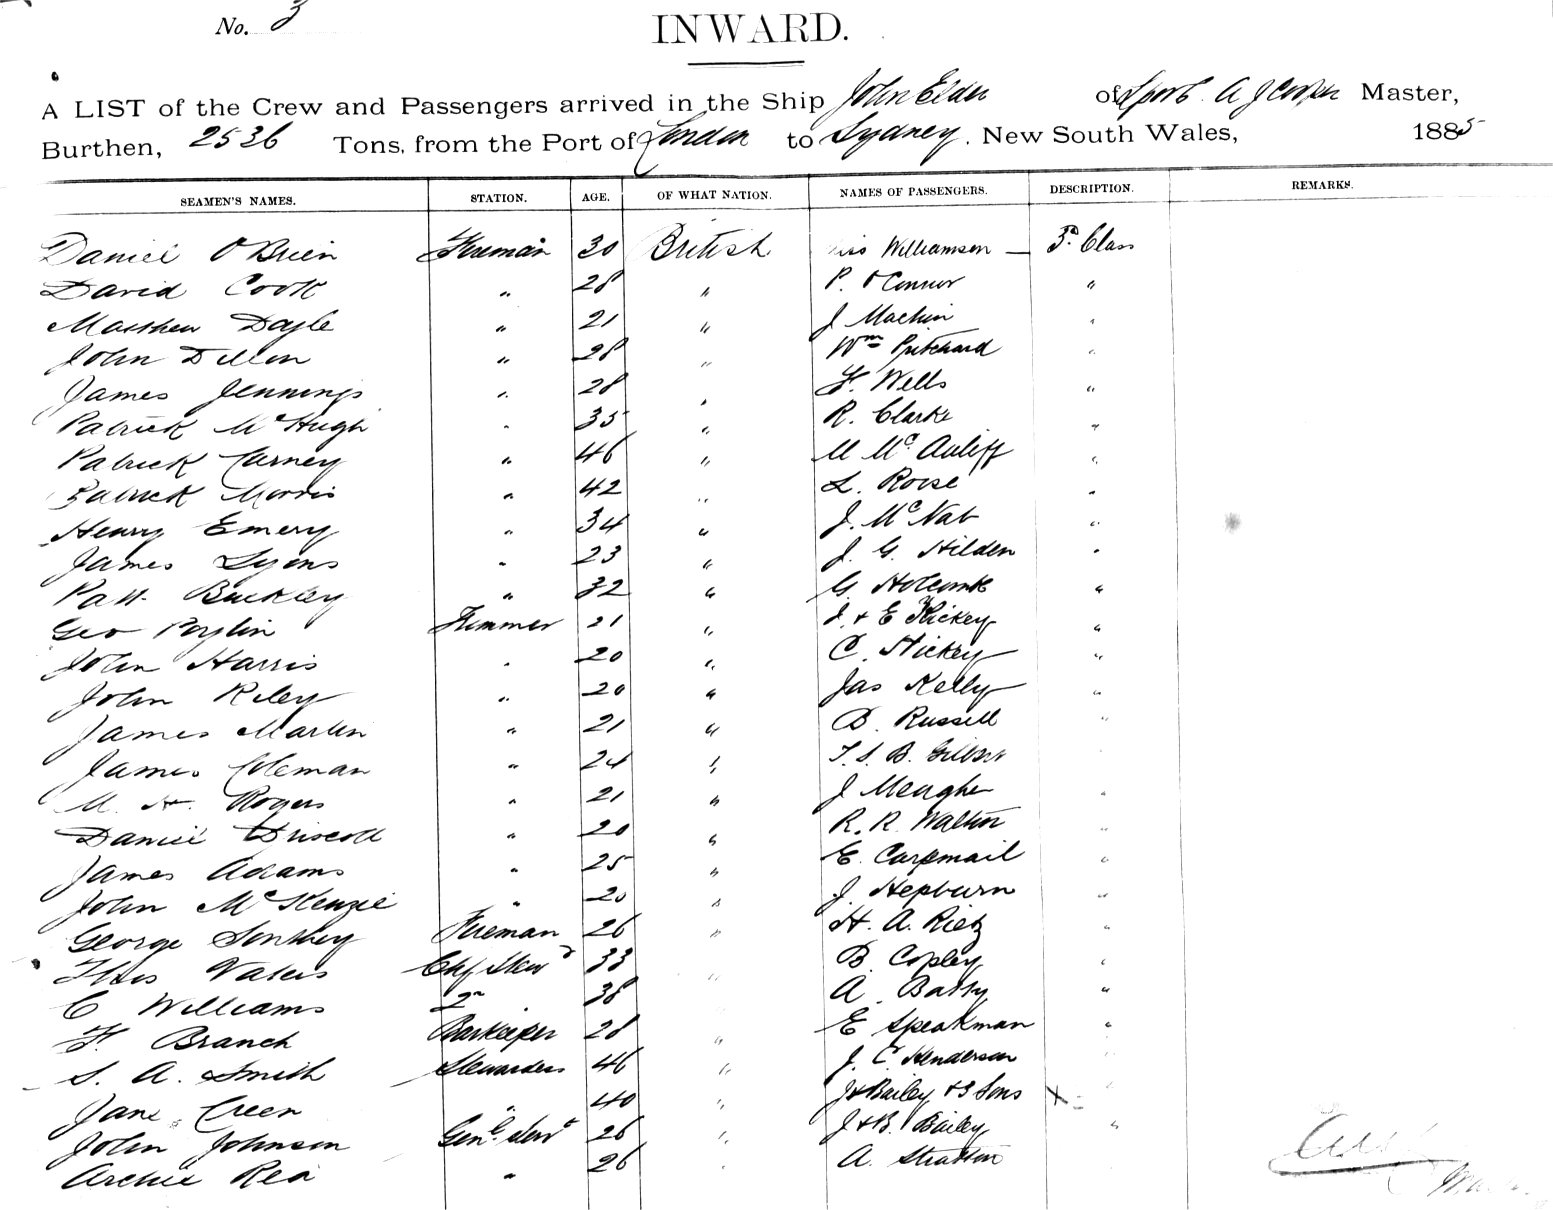 No. 3
INWARD.
A LIST of the Crew and Passengers arrived in the Ship John Elder of Lpool. A J Cooper Master,
Burthen, 2536 Tons, from the Port of London to Sydney, New South Wales, 1885
SEAMEN'S NAMES. STATION. AGE. OF WHAT NATION. NAMES OF PASSENGERS. DESCRIPTION. REMARKS.
Daniel O'Brien Fireman 30 British Miss Williamson — 3rd Class
David Cook " 28 " P. O'Connor "
Matthew Doyle " 21 " J Machin "
John Dillon " 28 " Wm Pritchard "
James Jennings " 28 " F. Wells "
Patrick McHugh " 35 " R. Clarke "
Patrick Carney " 46 " M McAuliff "
Patrick Morris " 42 " L. Rorse "
Henry Emery " 34 " J. McNab "
James Lyons " 23 " J. G. Hilden "
Patk. Buckley " 32 " G. Holcomb "
Geo Trimmer 21 " J. & E Hickey "
John Harris " 20 " C. Hickey "
John Riley " 20 " Jas Kelly "
James Martin " 21 " B. Russell "
James Coleman " 24 " T. S. B. Gilbert
M. H. Rogers " 21 " J Meagher "
Daniel Driscoll " 20 " R. R. Walton "
James Adams " 25 " E. Carpmail "
John McKenzie " 20 " J. Hepburn "
George Fireman 26 " H. A. Rietz "
Thos Vaters Chf Stewd 33 " B. Copley "
C Williams 2nd " 38 A. Batty "
F. Branch Barkeeper 28 " E Speakman "
S. A. Smith Stewardess 46 " J. C. Henderson "
Jane Creen " 40 " J & Bailey & 3 Sons X "
John Johnson Genl. Servt 26 " J & B. Bailey "
Archie Rea " 26 " A. Stratton